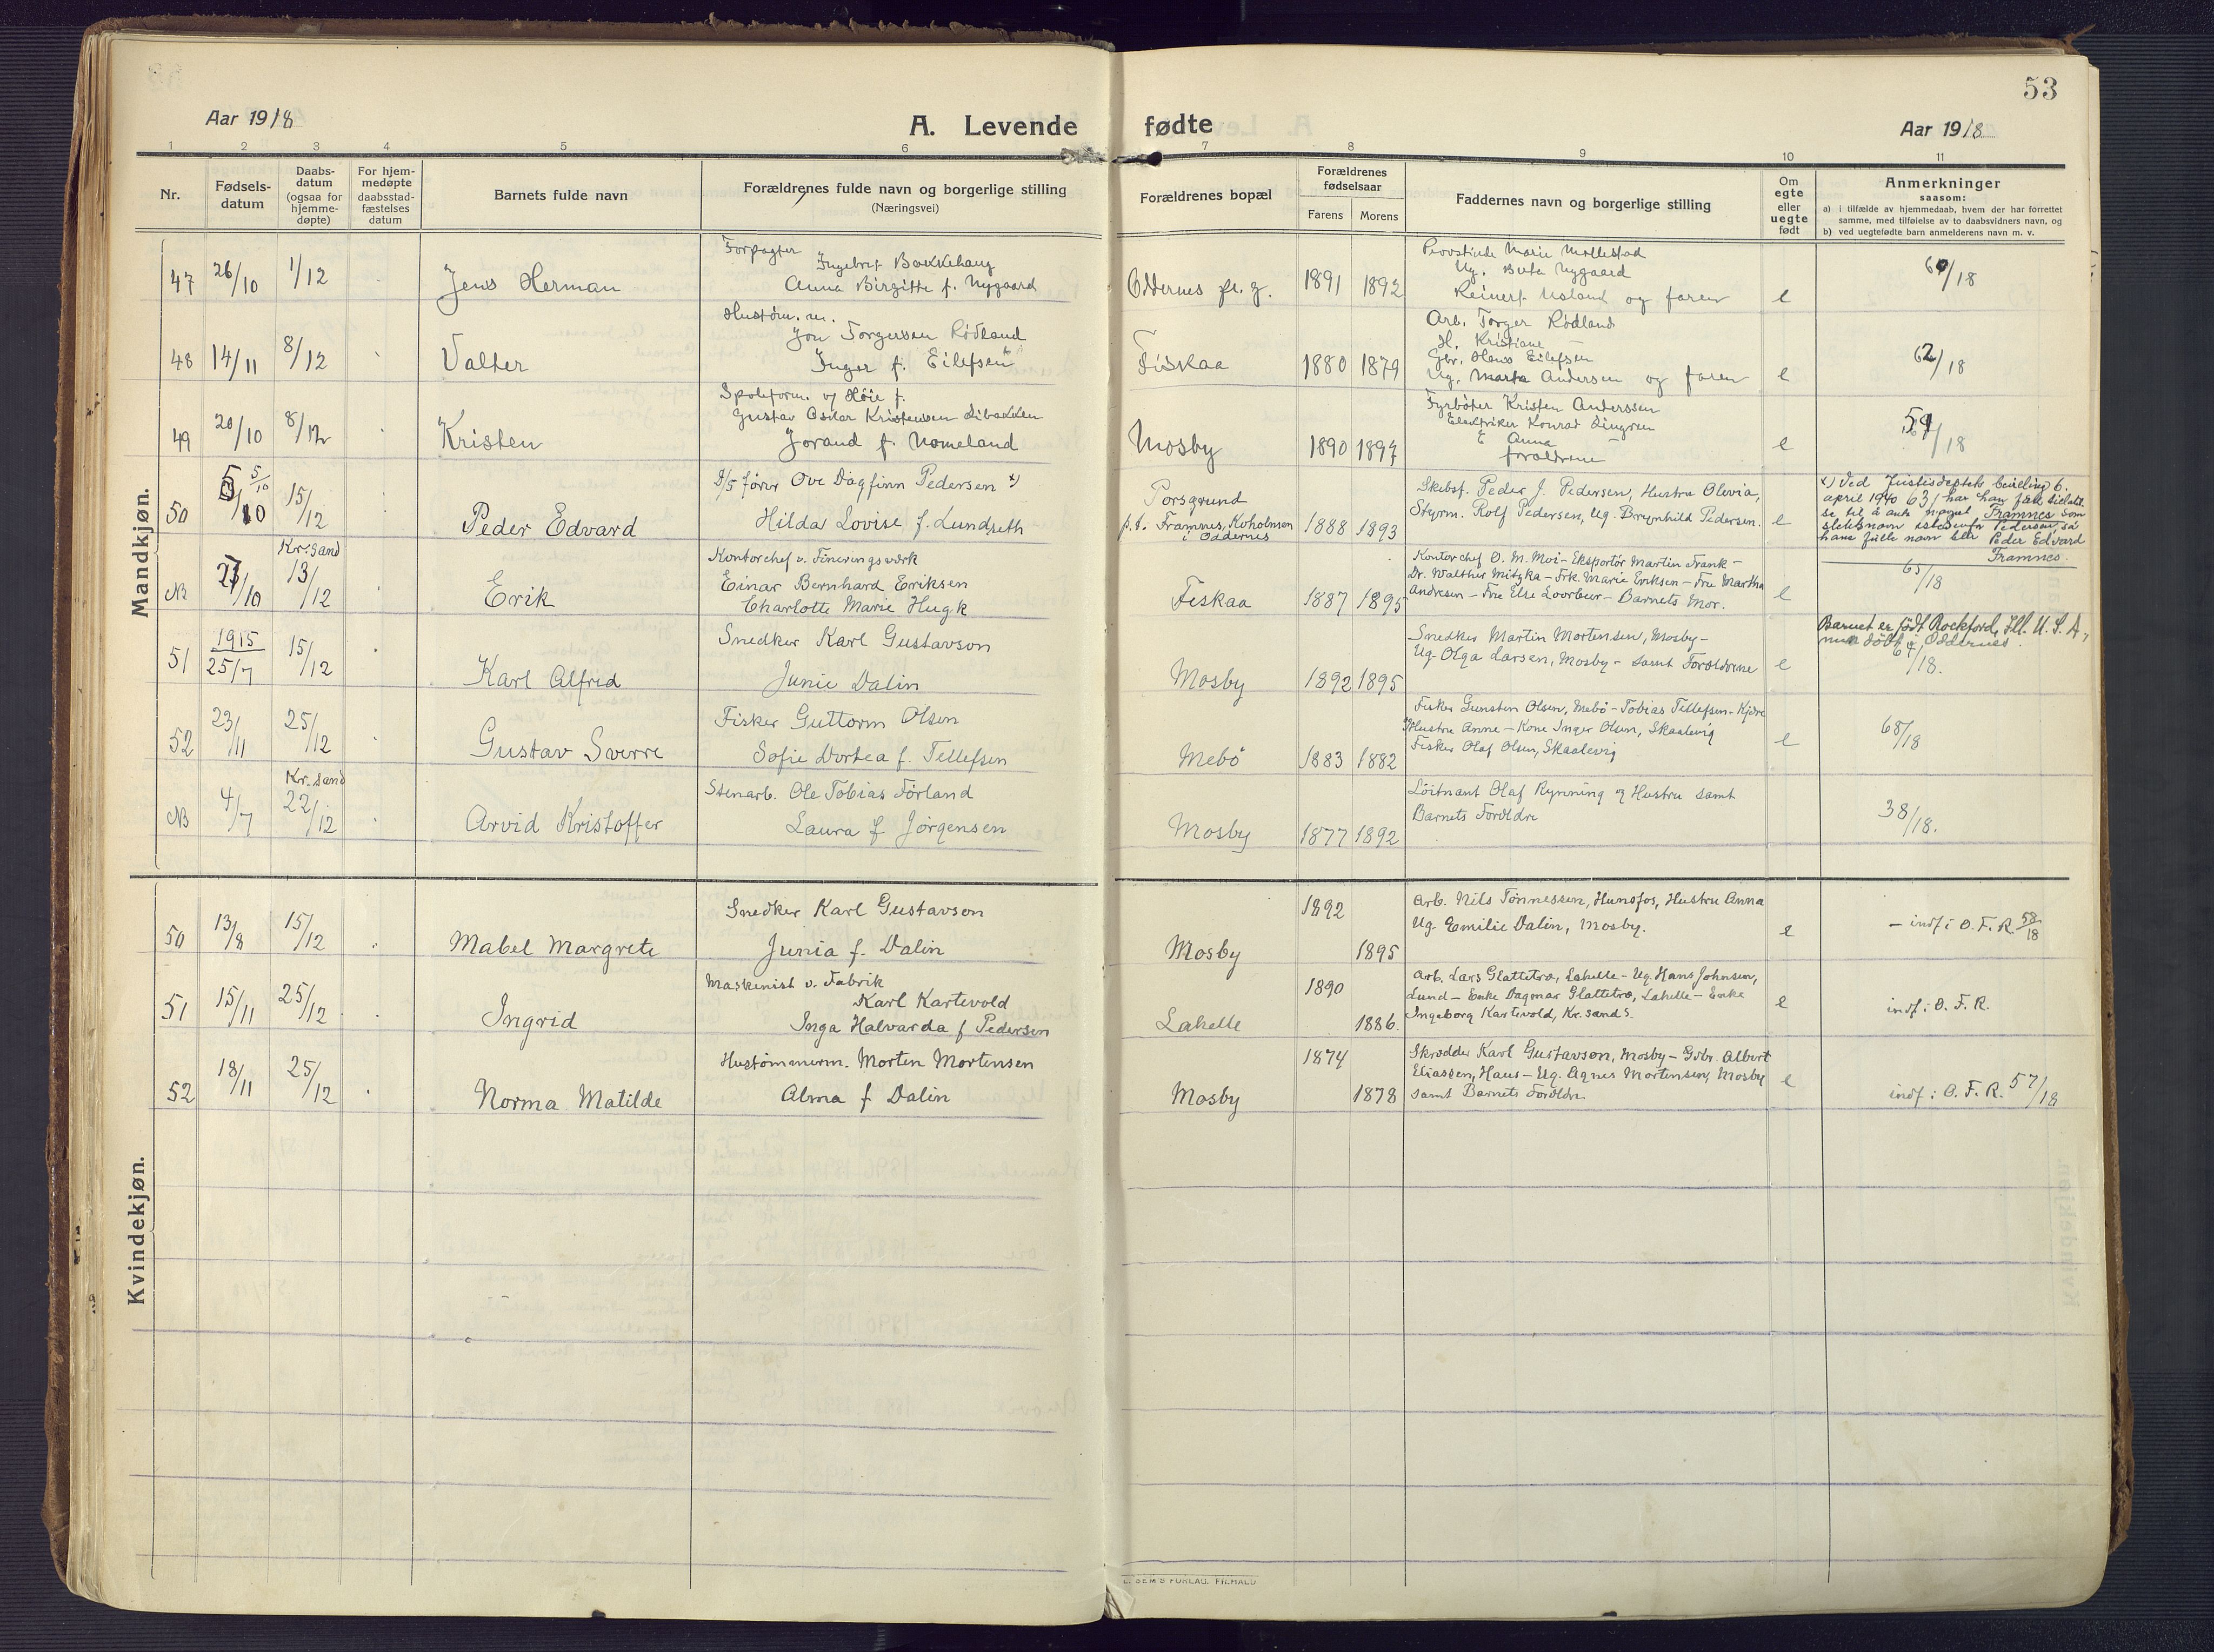 53
Aar 1918
A. Levende fødte
Aar 1918
1 2 3 4 5 6 7 8 9 10 11
Nr.
Fødsels-
datum
Daabs-
datum
(ogsaa for
hjemme-
døpte)
For hjem-
medøpte
daabsstad-
fæstelses
datum
Barnets fulde navn
Forældrenes fulde navn og borgerlige stilling
(Næringsvei)
Forældrenes bopæl
Forældrenes
fødselsaar
Farens Morens
Faddernes navn og borgerlige stilling
Om
egte
eller
uegte
født
Anmerkninger
saasom:
a) i tilfælde av hjemmedaab, hvem der har forrettet
samme, med tilføielse av to daabsvidners navn, og
b) ved uegtefødte barn anmelderens navn m. v.
Mandkjøn.
47 26/10 1/12 Jens Herman
Forpagter
Ingebret Bakkehaug
Anna Birgitte f. Nygaard
Oddernes pr.g. 1891 1892
Provstinde Marie Mollestad
Ug. Berta Nygaard
Reinert Usland og faren
e
60/18
48 14/11 8/12 Valter
Hustøm. m.
Jon Torgersen Rødland
Inger f. Eilefsen
Fiskaa 1880 1879
Arb. Torger Rødland
H. Kristiane —
Gbr. Hans Eilefsen
Ug. Marta Andersen og faren
e
62/18
49 20/10 8/12 Kristen
Spoleform. v/ Høie f.
Gustav Oskar Kristensen Libakken
Jorand f. Nomeland
Mosby 1890 1897
Fyrbøter Kristen Anderssen
Elektriker Konrad Lingren
E Anna —
forældrene
e
59/18
50 5/10 15/12 Peder Edvard
D/S fører Ove Dagfinn Pedersen x)
Hilda Lovise f. Lundseth
Porsgrund
p.t. Framnes, Koholmen
i Oddernes
1888 1893
Skibsf. Peder J. Pedersen, Hustru Olevia,
Styrm. Rolf Pedersen, Ug. Brynhild Pedersen.
e
x) Ved Justisdeptets bevilling 6.
april 1940 631 har han fått tillatel-
se til å anta navnet Framnes som
slektsnavn istedenfor Pedersen, så
hans fulle navn blir Peder Edvard
Framnes.
NB 27/10 Kr.sand
13/12 Erik
Kontorchef v. Fineringsværk
Einar Bernhard Eriksen
Charlotte Marie Hugk
Fiskaa 1887 1895
Kontorchef O. M. Moi - Eksportør Martin Frank -
Dr. Walther Mitzka - Frk. Marie Eriksen - Fru Martha
Andresen - Frue Else Loorbeer - Barnets Mor.
e
65/18
51 1915
25/7 15/12 Karl Alfred
Snedker Karl Gustavson
Junie Dalin
Mosby 1892 1895
Snedker Martin Mortensen, Mosby -
Ug. Olga Larsen, Mosby - samt Forældrene
e
Barnet er født Rockford, Ill. U.S.A,
men døbt i Oddernes.
/18.
52 23/11 25/12 Gustav Sverre
Fisker Guttorm Olsen
Sofie Dortea f. Tellefsen
Mebø 1883 1882
Fisker Gunsten Olsen, Mebø - Tobias Tellefsen - Kjøre
Hustru Anne - Kone Inger Olsen, Skaalevig
Fisker Olaf Olsen, Skaalevig
e
68/18
NB 4/7 Kr.sand
22/12 Arvid Kristoffer
Stenarb. Ole Tobias Førland
Laura f Jørgensen
Mosby 1877 1892
Løitnant Olaf Rynning og Hustru samt
Barnets Forældre
38/18.
Kvindekjøn.
50 13/8 15/12 Mabel Margrete
Snedker Karl Gustavson
Junia f. Dalin
Mosby 1892 1895
Arb. Nils Tønnessen, Hunsfos, Hustru Anna
Ug. Emilie Dalin, Mosby.
e
- indf: O.F.R. 58/18
51 15/11 25/12 Ingrid
Maskinist v. Fabrik
Karl Kartevold
Inga Halvarda f Pedersen
Lahelle 1890 1886.
Arb. Lars Glattetræ, Lahelle - Ug. Hans Johnsen,
Lund - Enke Dagmar Glattetræ, Lahelle - Enke
Ingeborg Kartevold, Kr.sand S.
e
indf: O.F.R.
52 18/11 25/12 Norma Matilde
Hustømmerm. Morten Mortensen
Alma f Dalin
Mosby 1874 1878
Skrædder Karl Gustavson, Mosby - Gbr. Albert
Eliassen, Haus - Ug. Agnes Mortensen, Mosby
samt Barnets Forældre
e
indf: O.F.R. 57/18
SEM'S FORLAG. FR.HALD